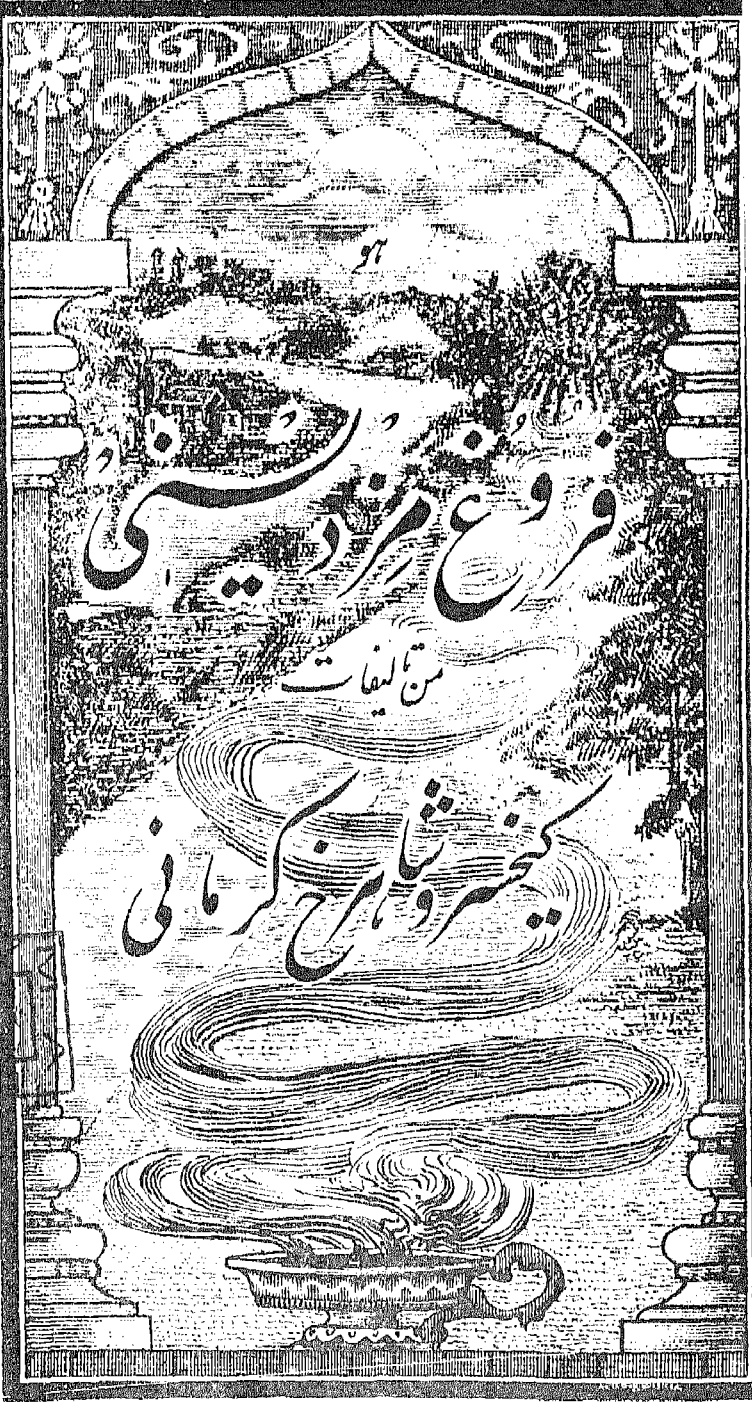 فُرُوغِ مَزْدَیَسْنِی
من تالیفات
کیخسرو شاهرخ کرمانی